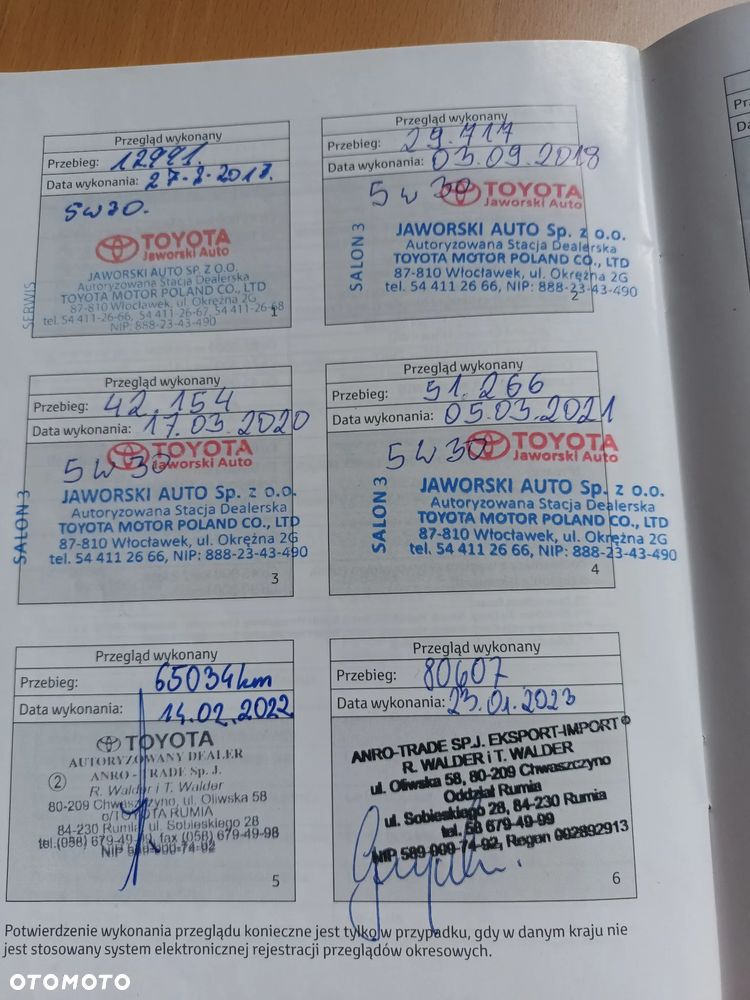 Przegląd wykonany
Przebieg: 12991.
Data wykonania: 27-2-2018.
5W30.
TOYOTA
Jaworski Auto
SERWIS
JAWORSKI AUTO SP. Z O.O.
Autoryzowana Stacja Dealerska
TOYOTA MOTOR POLAND CO., LTD
87-810 Włocławek, ul. Okrężna 2G
tel. 54 411-26-66, 54 411-26-67, 54 411-26-68
NIP: 888-23-43-490
1
Przegląd wykonany
Przebieg: 29.717
Data wykonania: 03.09.2018
5W30
TOYOTA
Jaworski Auto
SALON 3
JAWORSKI AUTO Sp. z o.o.
Autoryzowana Stacja Dealerska
TOYOTA MOTOR POLAND CO., LTD
87-810 Włocławek, ul. Okrężna 2G
tel. 54 411 26 66, NIP: 888-23-43-490
2
Przegląd wykonany
Przebieg: 42.154
Data wykonania: 17.03.2020
5W30
TOYOTA
Jaworski Auto
SALON 3
JAWORSKI AUTO Sp. z o.o.
Autoryzowana Stacja Dealerska
TOYOTA MOTOR POLAND CO., LTD
87-810 Włocławek, ul. Okrężna 2G
tel. 54 411 26 66, NIP: 888-23-43-490
3
Przegląd wykonany
Przebieg: 51.266
Data wykonania: 05.03.2021
5W30
TOYOTA
Jaworski Auto
SALON 3
JAWORSKI AUTO Sp. z o.o.
Autoryzowana Stacja Dealerska
TOYOTA MOTOR POLAND CO., LTD
87-810 Włocławek, ul. Okrężna 2G
tel. 54 411 26 66, NIP: 888-23-43-490
4
Przegląd wykonany
Przebieg: 65034km
Data wykonania: 14.02.2022
TOYOTA
AUTORYZOWANY DEALER
2 ANRO - TRADE Sp. J.
R. Walder i T. Walder
80-209 Chwaszczyno, ul. Oliwska 58
o/TOYOTA RUMIA
84-230 Rumia, ul. Sobieskiego 28
tel.(058) 679-49-99, fax (058) 679-49-98
NIP 589-000-74-92
5
Przegląd wykonany
Przebieg: 80607
Data wykonania: 23.01.2023
ANRO-TRADE SP.J. EKSPORT-IMPORT
R. WALDER i T. WALDER
ul. Oliwska 58, 80-209 Chwaszczyno
Oddział Rumia
ul. Sobieskiego 28, 84-230 Rumia
tel. 58 679-49-99
NIP 589-000-74-92, Regon 002892913
6
Potwierdzenie wykonania przeglądu konieczne jest tylko w przypadku, gdy w danym kraju nie
jest stosowany system elektronicznej rejestracji przeglądów okresowych.
OTOMOTO